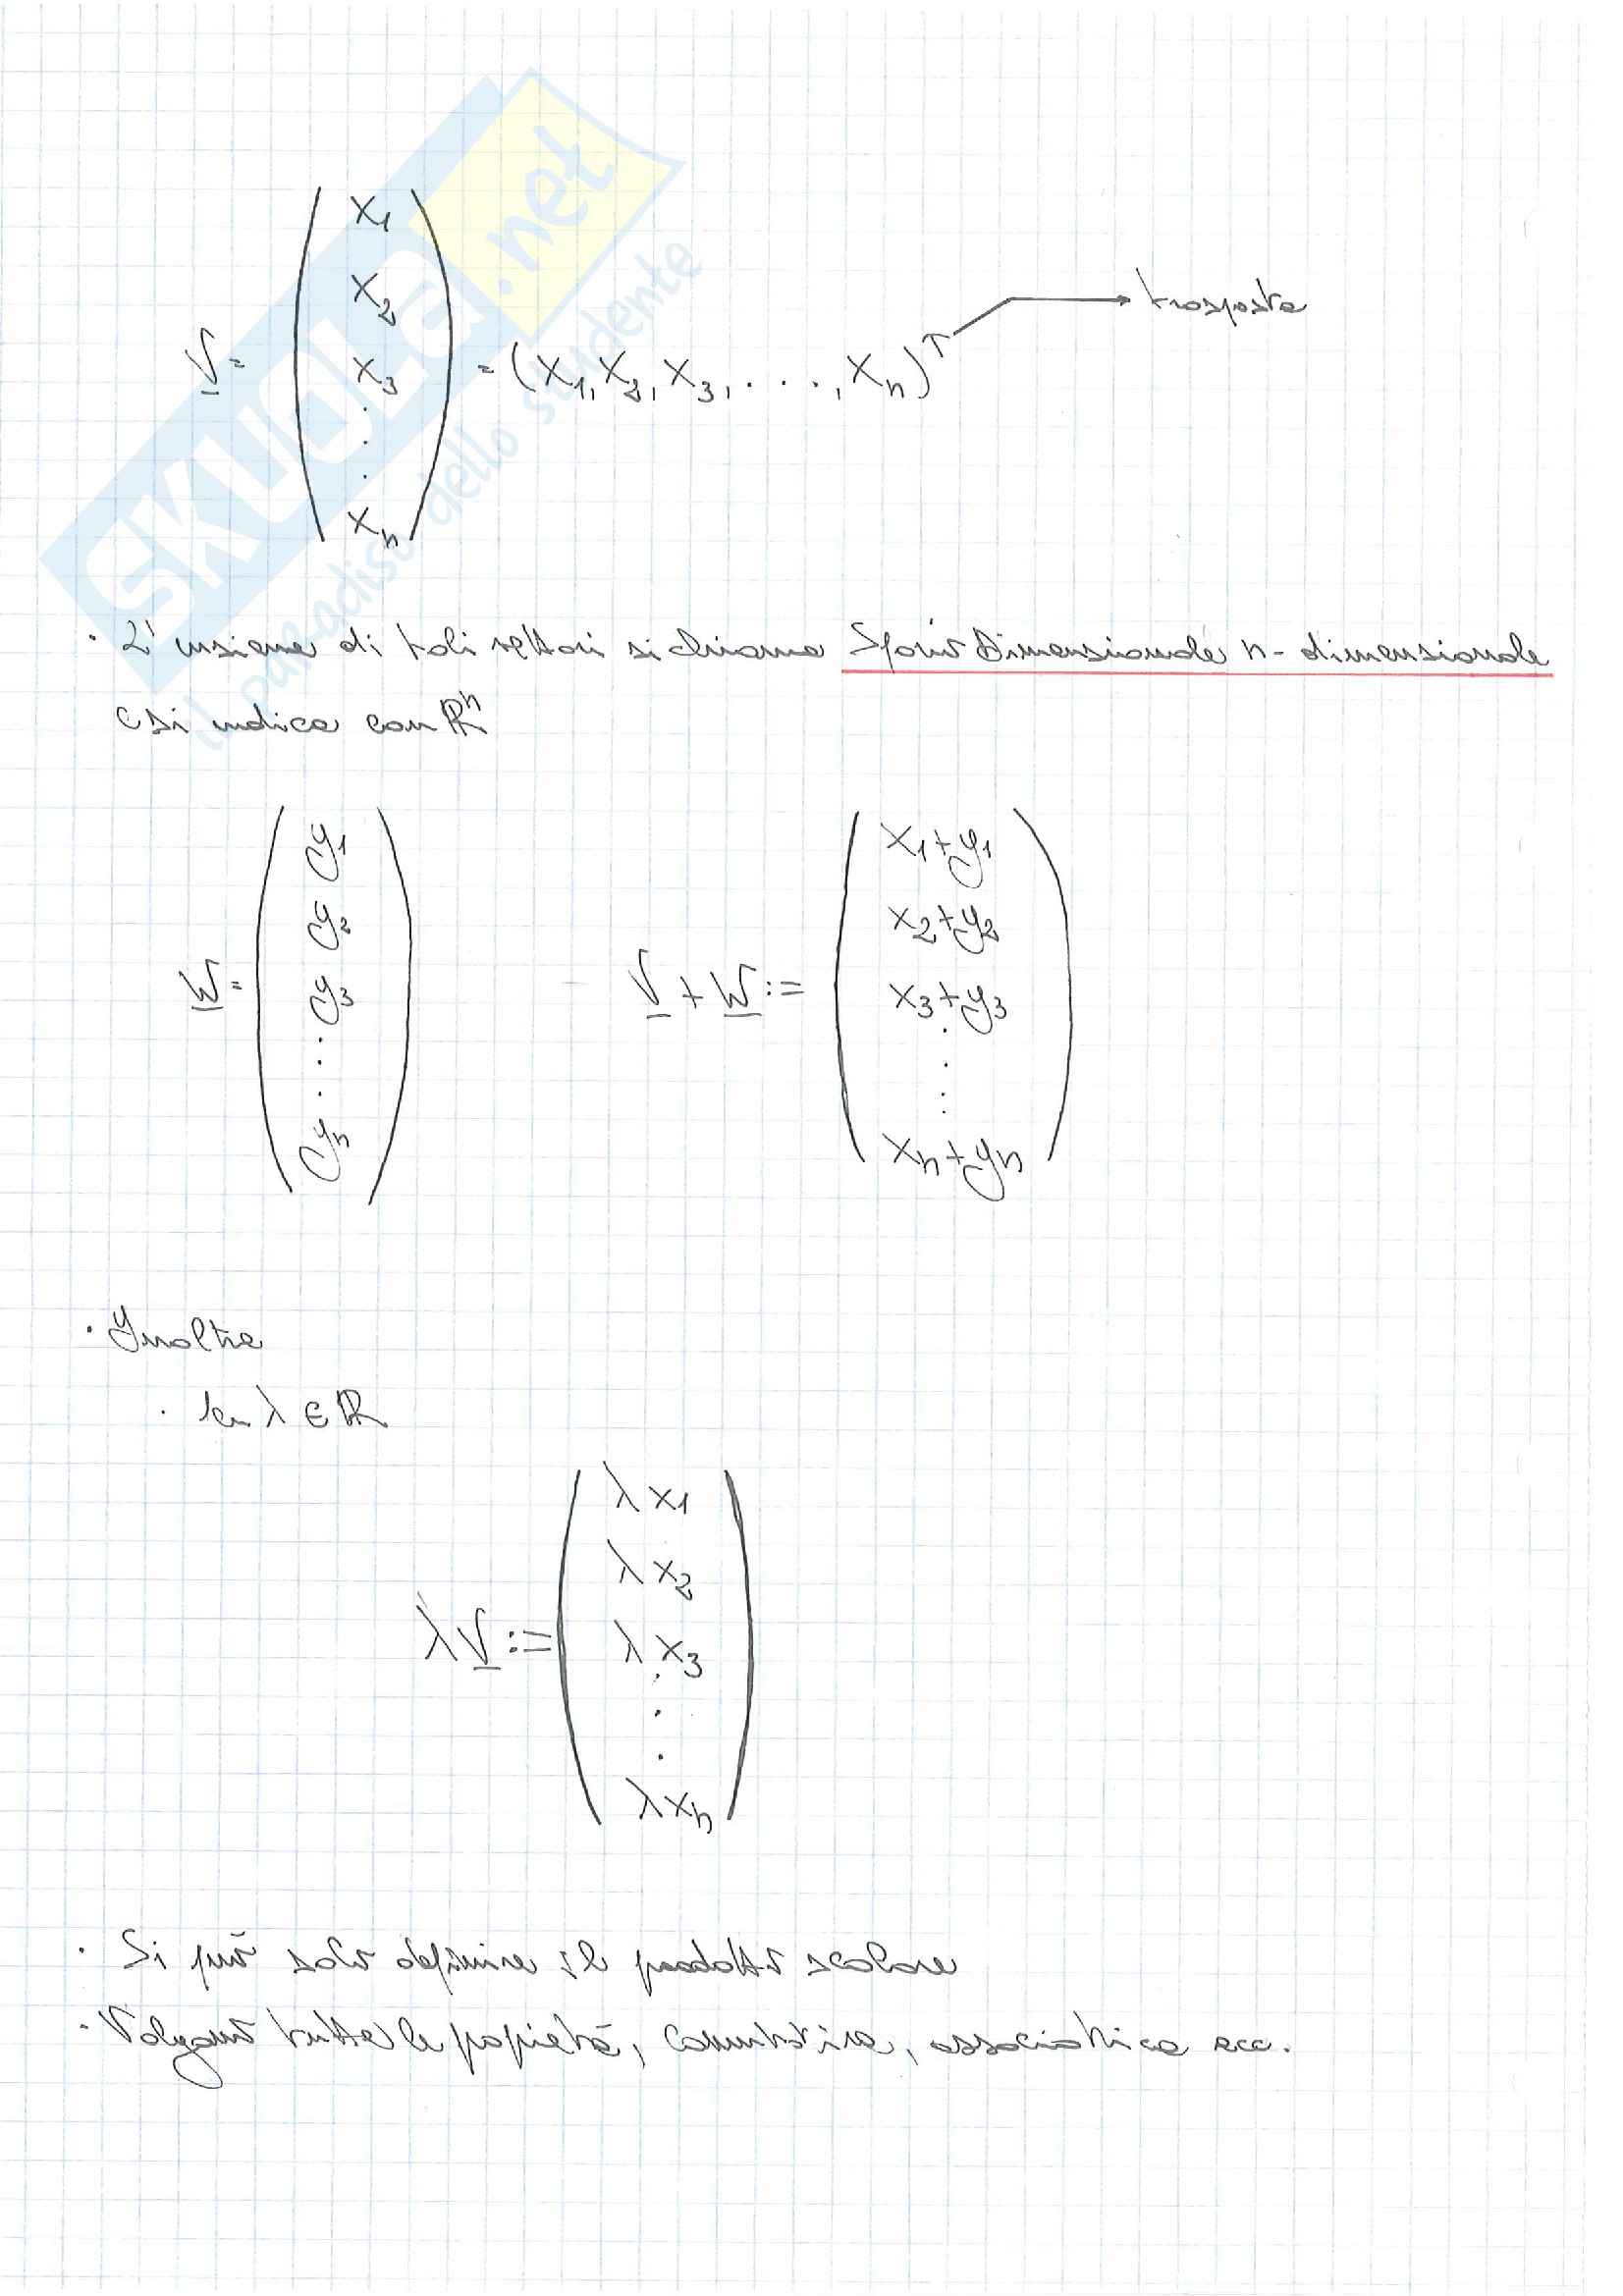 SKUOLA.net
il paradiso dello studente
V = ( x1 x2 x3 . . . xn ) = (x1, x2, x3, . . . , xn)^T → trasposta
· L'insieme di tali vettori si chiama Spazio Dimensionale n-dimensionale
e si indica con ℝ^n
W = ( y1 y2 y3 . . . yn )   V + W := ( x1+y1 x2+y2 x3+y3 . . . xn+yn )
· Inoltre
· λ ∈ ℝ
λV := ( λx1 λx2 λx3 . . . λxn )
· Si può solo definire il prodotto scalare
· Valgono tutte le proprietà, commutativa, associativa ecc.